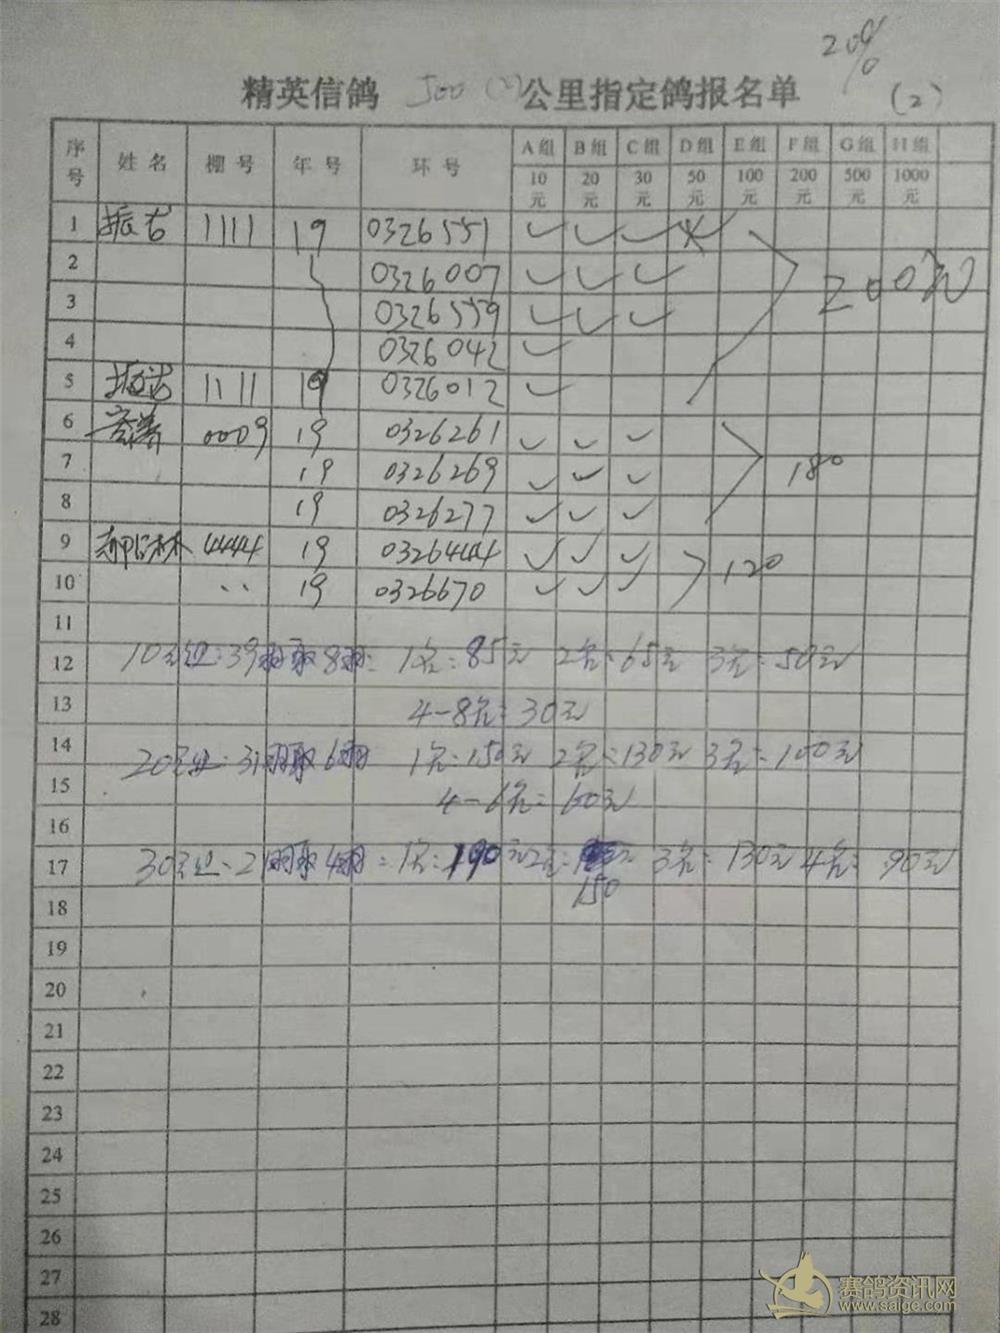 20%
精英信鸽 500 (2) 公里指定鸽报名单 (2)
序号 姓名 棚号 年号 环号 A组 B组 C组 D组 E组 F组 G组 H组
10元 20元 30元 50元 100元 200元 500元 1000元
1 1111 19 0326551 ✓ ✓ ✓
2 0326007 ✓ ✓ ✓ 200元
3 0326559 ✓ ✓ ✓
4 0326042 ✓
5 1111 19 0326012 ✓
6 0009 19 0326261 ✓ ✓ ✓
7 19 0326269 ✓ ✓ ✓ 180
8 19 0326277 ✓ ✓ ✓
9 4444 19 0326444 ✓ ✓ ✓ 120
10 19 0326670 ✓ ✓ ✓
11
12 10元组:39羽取8羽: 1名:85元 2名:65元 3名:50元
13 4-8名:30元
14 20元组:31羽取6羽 1名:150元 2名:130元 3名:100元
15 4-6名:60元
16
17 30元组:21羽取4羽:1名:190元 2名: 元 3名:130元 4名:90元
150
18
19
20
21
22
23
24
25
26
27
28
赛鸽资讯网
www.saige.com